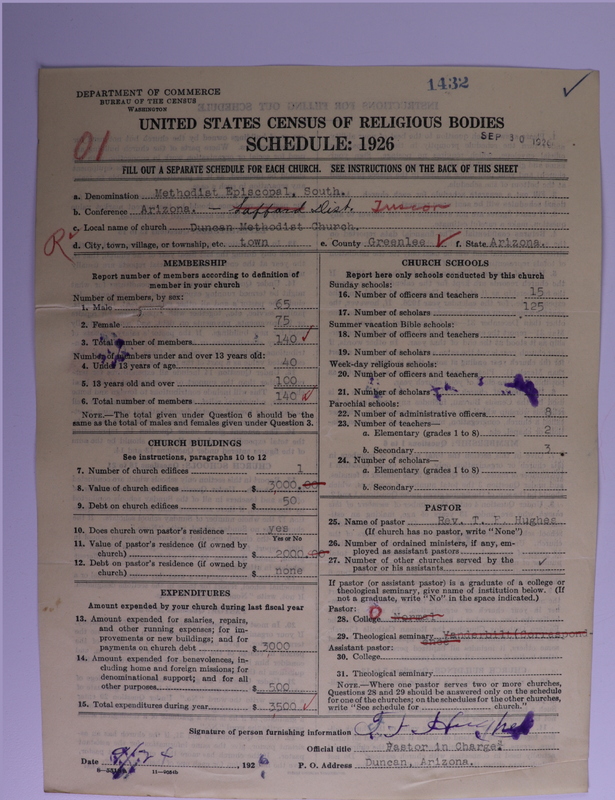 1432
DEPARTMENT OF COMMERCE
BUREAU OF THE CENSUS
WASHINGTON
UNITED STATES CENSUS OF RELIGIOUS BODIES
SEP 30 1926
SCHEDULE: 1926
01
FILL OUT A SEPARATE SCHEDULE FOR EACH CHURCH. SEE INSTRUCTIONS ON THE BACK OF THIS SHEET
a. Denomination Methodist Episcopal, South.
b. Conference Arizona. – Safford Dist. Tuscon
c. Local name of church Duncan Methodist Church.
R
d. City, town, village, or township, etc. town e. County Greenlee f. State Arizona.
MEMBERSHIP
Report number of members according to definition of
member in your church
Number of members, by sex:
1. Male 65
2. Female 75
3. Total number of members 140
Number of members under and over 13 years old:
4. Under 13 years of age 40
5. 13 years old and over 100
6. Total number of members 140
NOTE.—The total given under Question 6 should be
same as the total of males and females given under Question 3.
CHURCH BUILDINGS
See instructions, paragraphs 10 to 12
7. Number of church edifices 1
8. Value of church edifices $ 3000.00
9. Debt on church edifices $ 50
10. Does church own pastor's residence yes
Yes or No
11. Value of pastor's residence (if owned by
church) $ 2000.00
12. Debt on pastor's residence (if owned by
church) $ none
EXPENDITURES
Amount expended by your church during last fiscal year
13. Amount expended for salaries, repairs,
and other running expenses; for im-
provements or new buildings; and for
payments on church debt $ 3000
14. Amount expended for benevolences, in-
cluding home and foreign missions; for
denominational support; and for all
other purposes $ 500
15. Total expenditures during year $ 3500
CHURCH SCHOOLS
Report here only schools conducted by this church
Sunday schools:
16. Number of officers and teachers 15
17. Number of scholars 125
Summer vacation Bible schools:
18. Number of officers and teachers
19. Number of scholars
Week-day religious schools:
20. Number of officers and teachers
21. Number of scholars
Parochial schools:
22. Number of administrative officers 8
23. Number of teachers—
a. Elementary (grades 1 to 8) 2
b. Secondary 3
24. Number of scholars—
a. Elementary (grades 1 to 8)
b. Secondary
PASTOR
25. Name of pastor Rev. T. F. Hughes
(If church has no pastor, write "None")
26. Number of ordained ministers, if any, em-
ployed as assistant pastors
27. Number of other churches served by the
pastor or his assistants
If pastor (or assistant pastor) is a graduate of a college or
theological seminary, give name of institution below. (If
not a graduate, write "No" in the space indicated.)
Pastor:
28. College
29. Theological seminary Vanderbilt(Correspon-
Assistant pastor:
30. College
31. Theological seminary
NOTE.—Where one pastor serves two or more churches,
Questions 28 and 29 should be answered only on the schedule
for one of the churches; on the schedules for the other churches,
write "See schedule for church."
Signature of person furnishing information T. F. Hughes
Official title Pastor in Charge
Date , 1926 P. O. Address Duncan, Arizona.